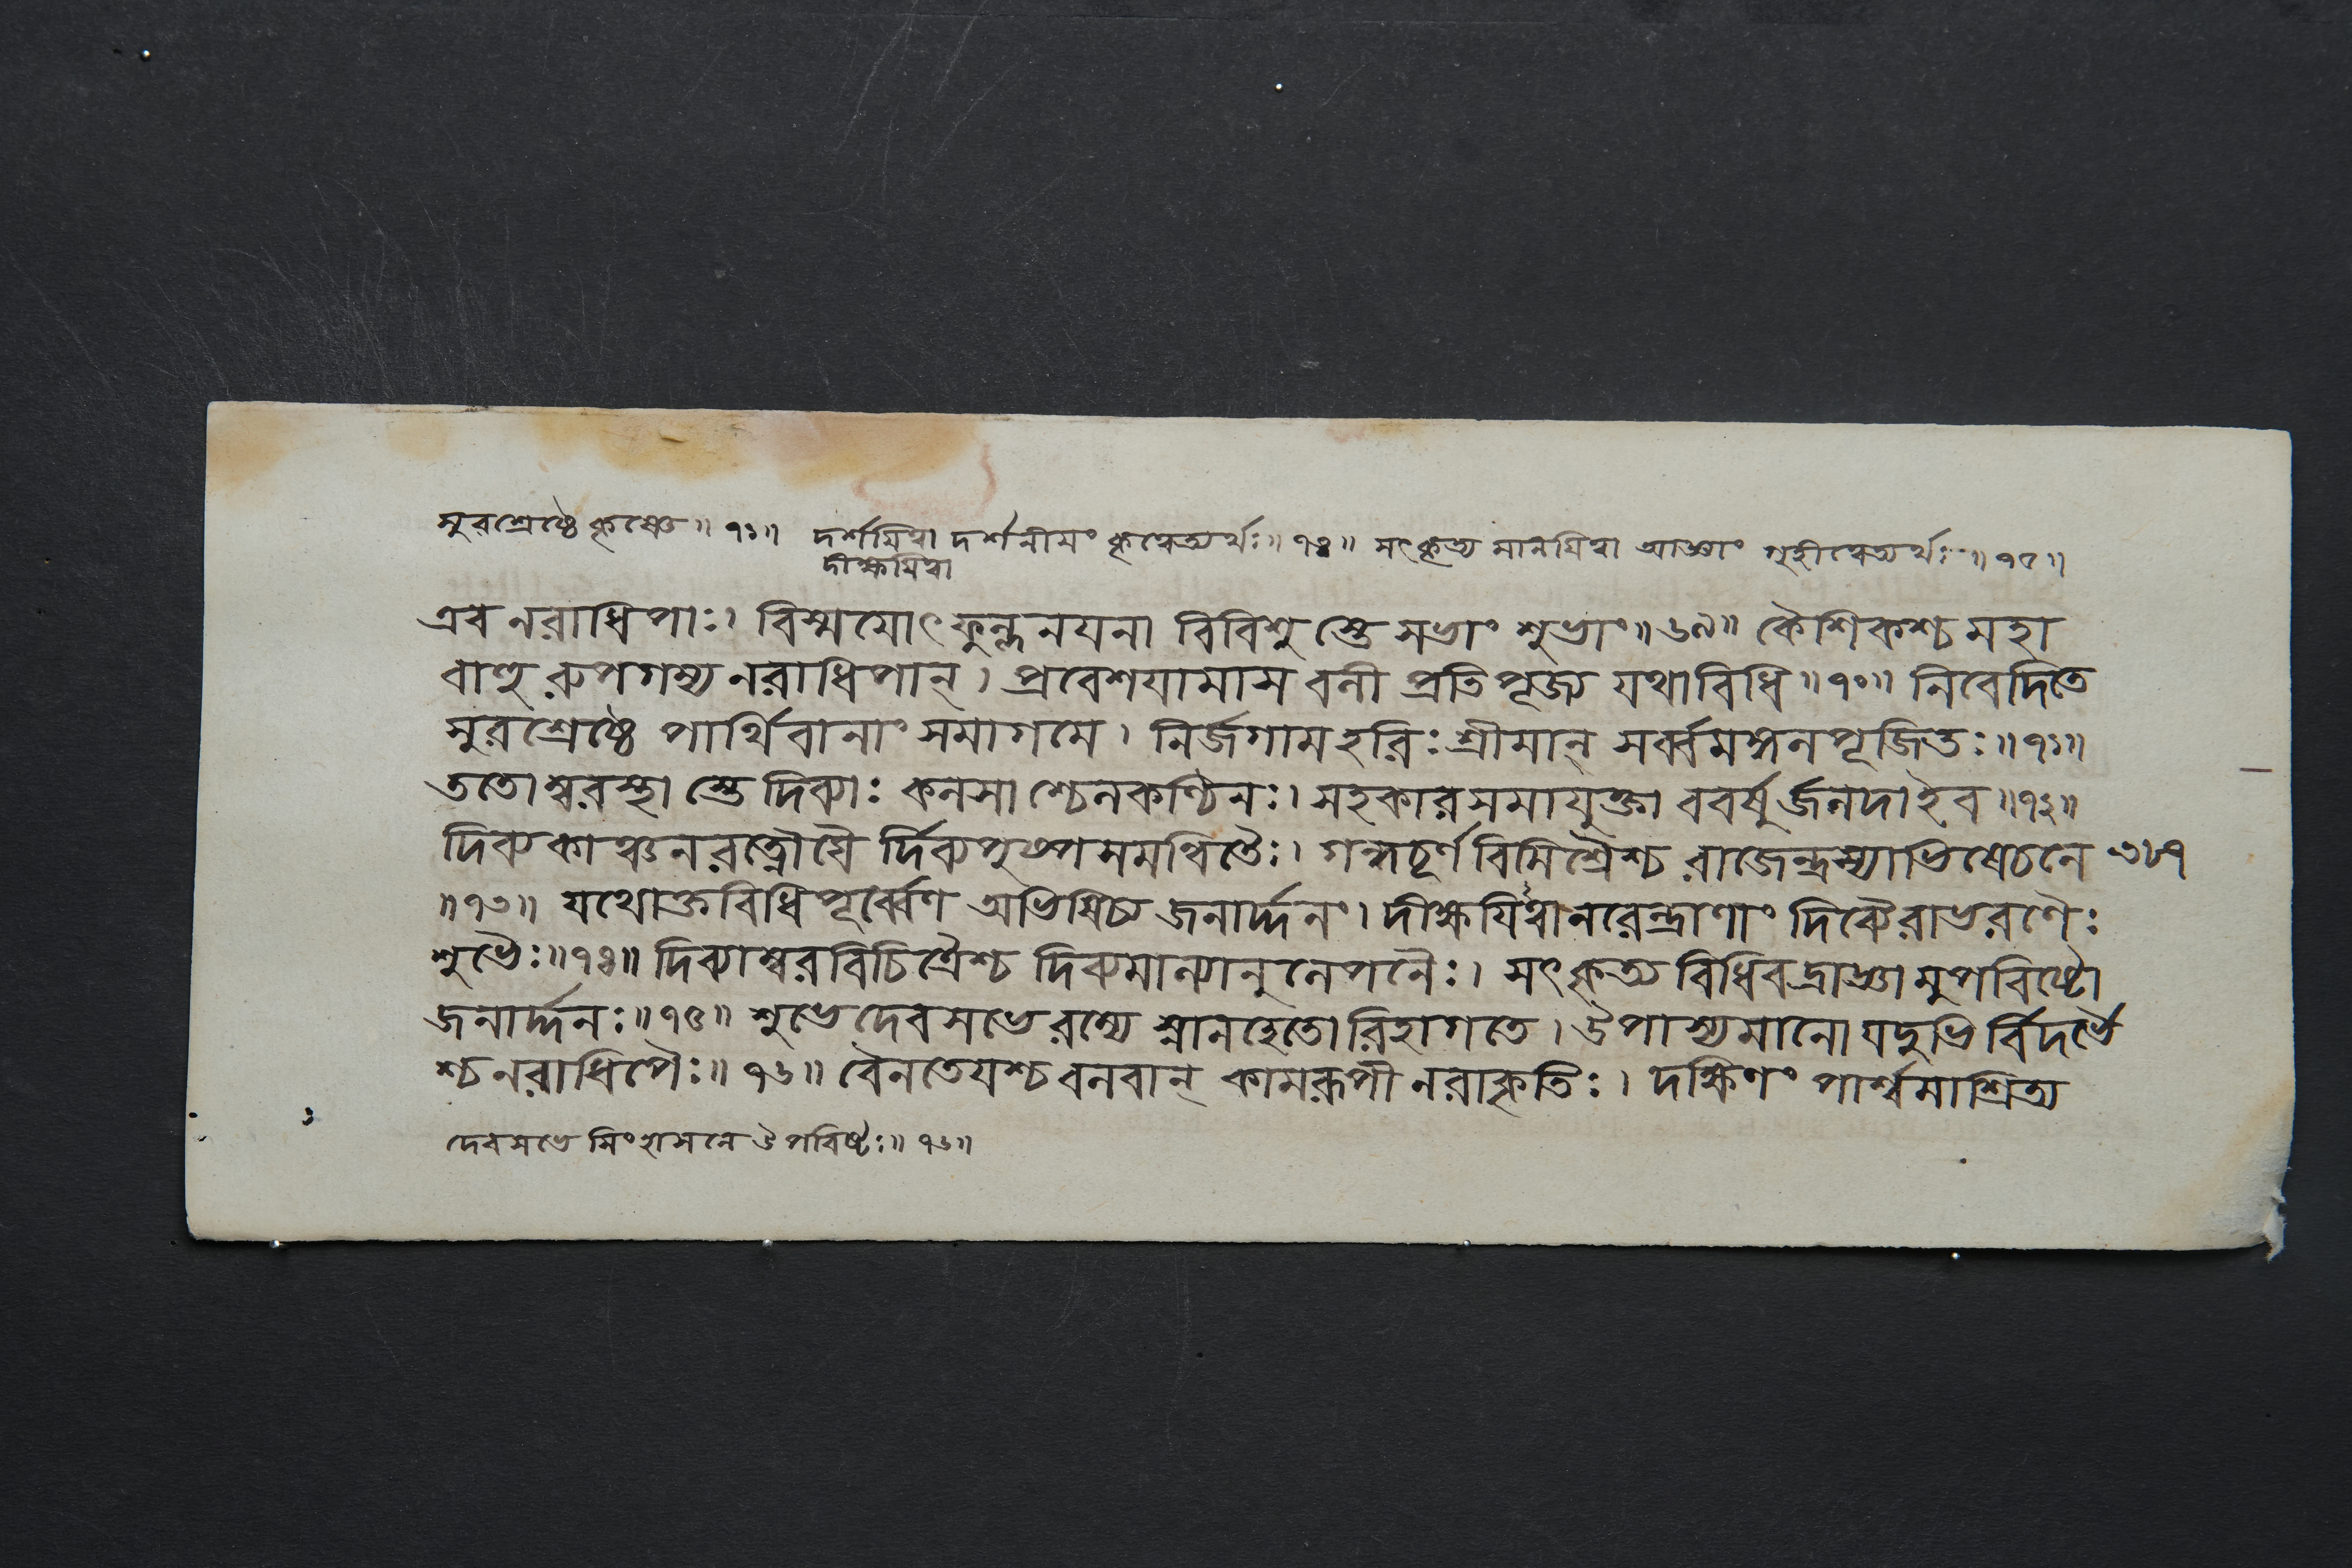 সুরশ্রেষ্ঠে কৃষ্ণে॥ ৭১॥ দর্শয়িত্বা দর্শনীয়ং কৃত্বেত্যর্থঃ॥ ৭৪॥ সৎকৃত্য মানয়িত্বা আজ্ঞাং গৃহীত্বেত্যর্থঃ॥ ৭৫॥
দীক্ষয়িত্বা
এব নরাধিপাঃ। বিস্ময়োৎফুল্লনয়না বিবিশুস্তে সভাং শুভাং॥৬৯॥ কৈশিকশ্চ মহা
বাহুরুপগম্য নরাধিপান্। প্রবেশয়ামাস বলী প্রতিপূজ্য যথাবিধি॥৭০॥ নিবেদিতে
সুরশ্রেষ্ঠে পার্থিবানাং সমাগমে। নির্জগাম হরিঃ শ্রীমান্ সর্ব্বমঙ্গলপূজিতঃ॥৭১॥
ততোম্বরস্থাস্তে দিব্যাঃ কলসাশ্চেলকণ্ঠিনঃ। সহকারসমাযুক্তা ববর্ষুর্জলদাইব॥৭২॥
দিব্যকাঞ্চনরত্নৌঘৈর্দিব্যপুষ্পসমন্বিতৈঃ। গন্ধচূর্ণবিমিশ্রৈশ্চ রাজেন্দ্রস্যাভিষেচনে ৩৮৭
॥৭৩॥ যথোক্তবিধিপূর্ব্বেণ অভিষিচ্য জনার্দ্দনং। দীক্ষয়িত্বা নরেন্দ্রাণাং দিব্যৈরাভরণৈঃ
শুভৈঃ॥৭৪॥ দিব্যাম্বরবিচিত্রৈশ্চ দিব্যমাল্যানুলেপনৈঃ। সৎকৃত্য বিধিবদ্রাজ্ঞামুপবিষ্টো
জনার্দ্দনঃ॥৭৫॥ শুভে দেবসভে রম্যে স্নানহেতোরিহাগতে। উপাস্যমানো যদুভির্বিদর্ভৈ
শ্চ নরাধিপৈঃ॥ ৭৬॥ বৈনতেয়শ্চ বলবান্ কামরূপী নরাকৃতিঃ। দক্ষিণং পার্শ্বমাশ্রিত্য
দেবসভে সিংহাসনে উপবিষ্টঃ॥ ৭৬॥